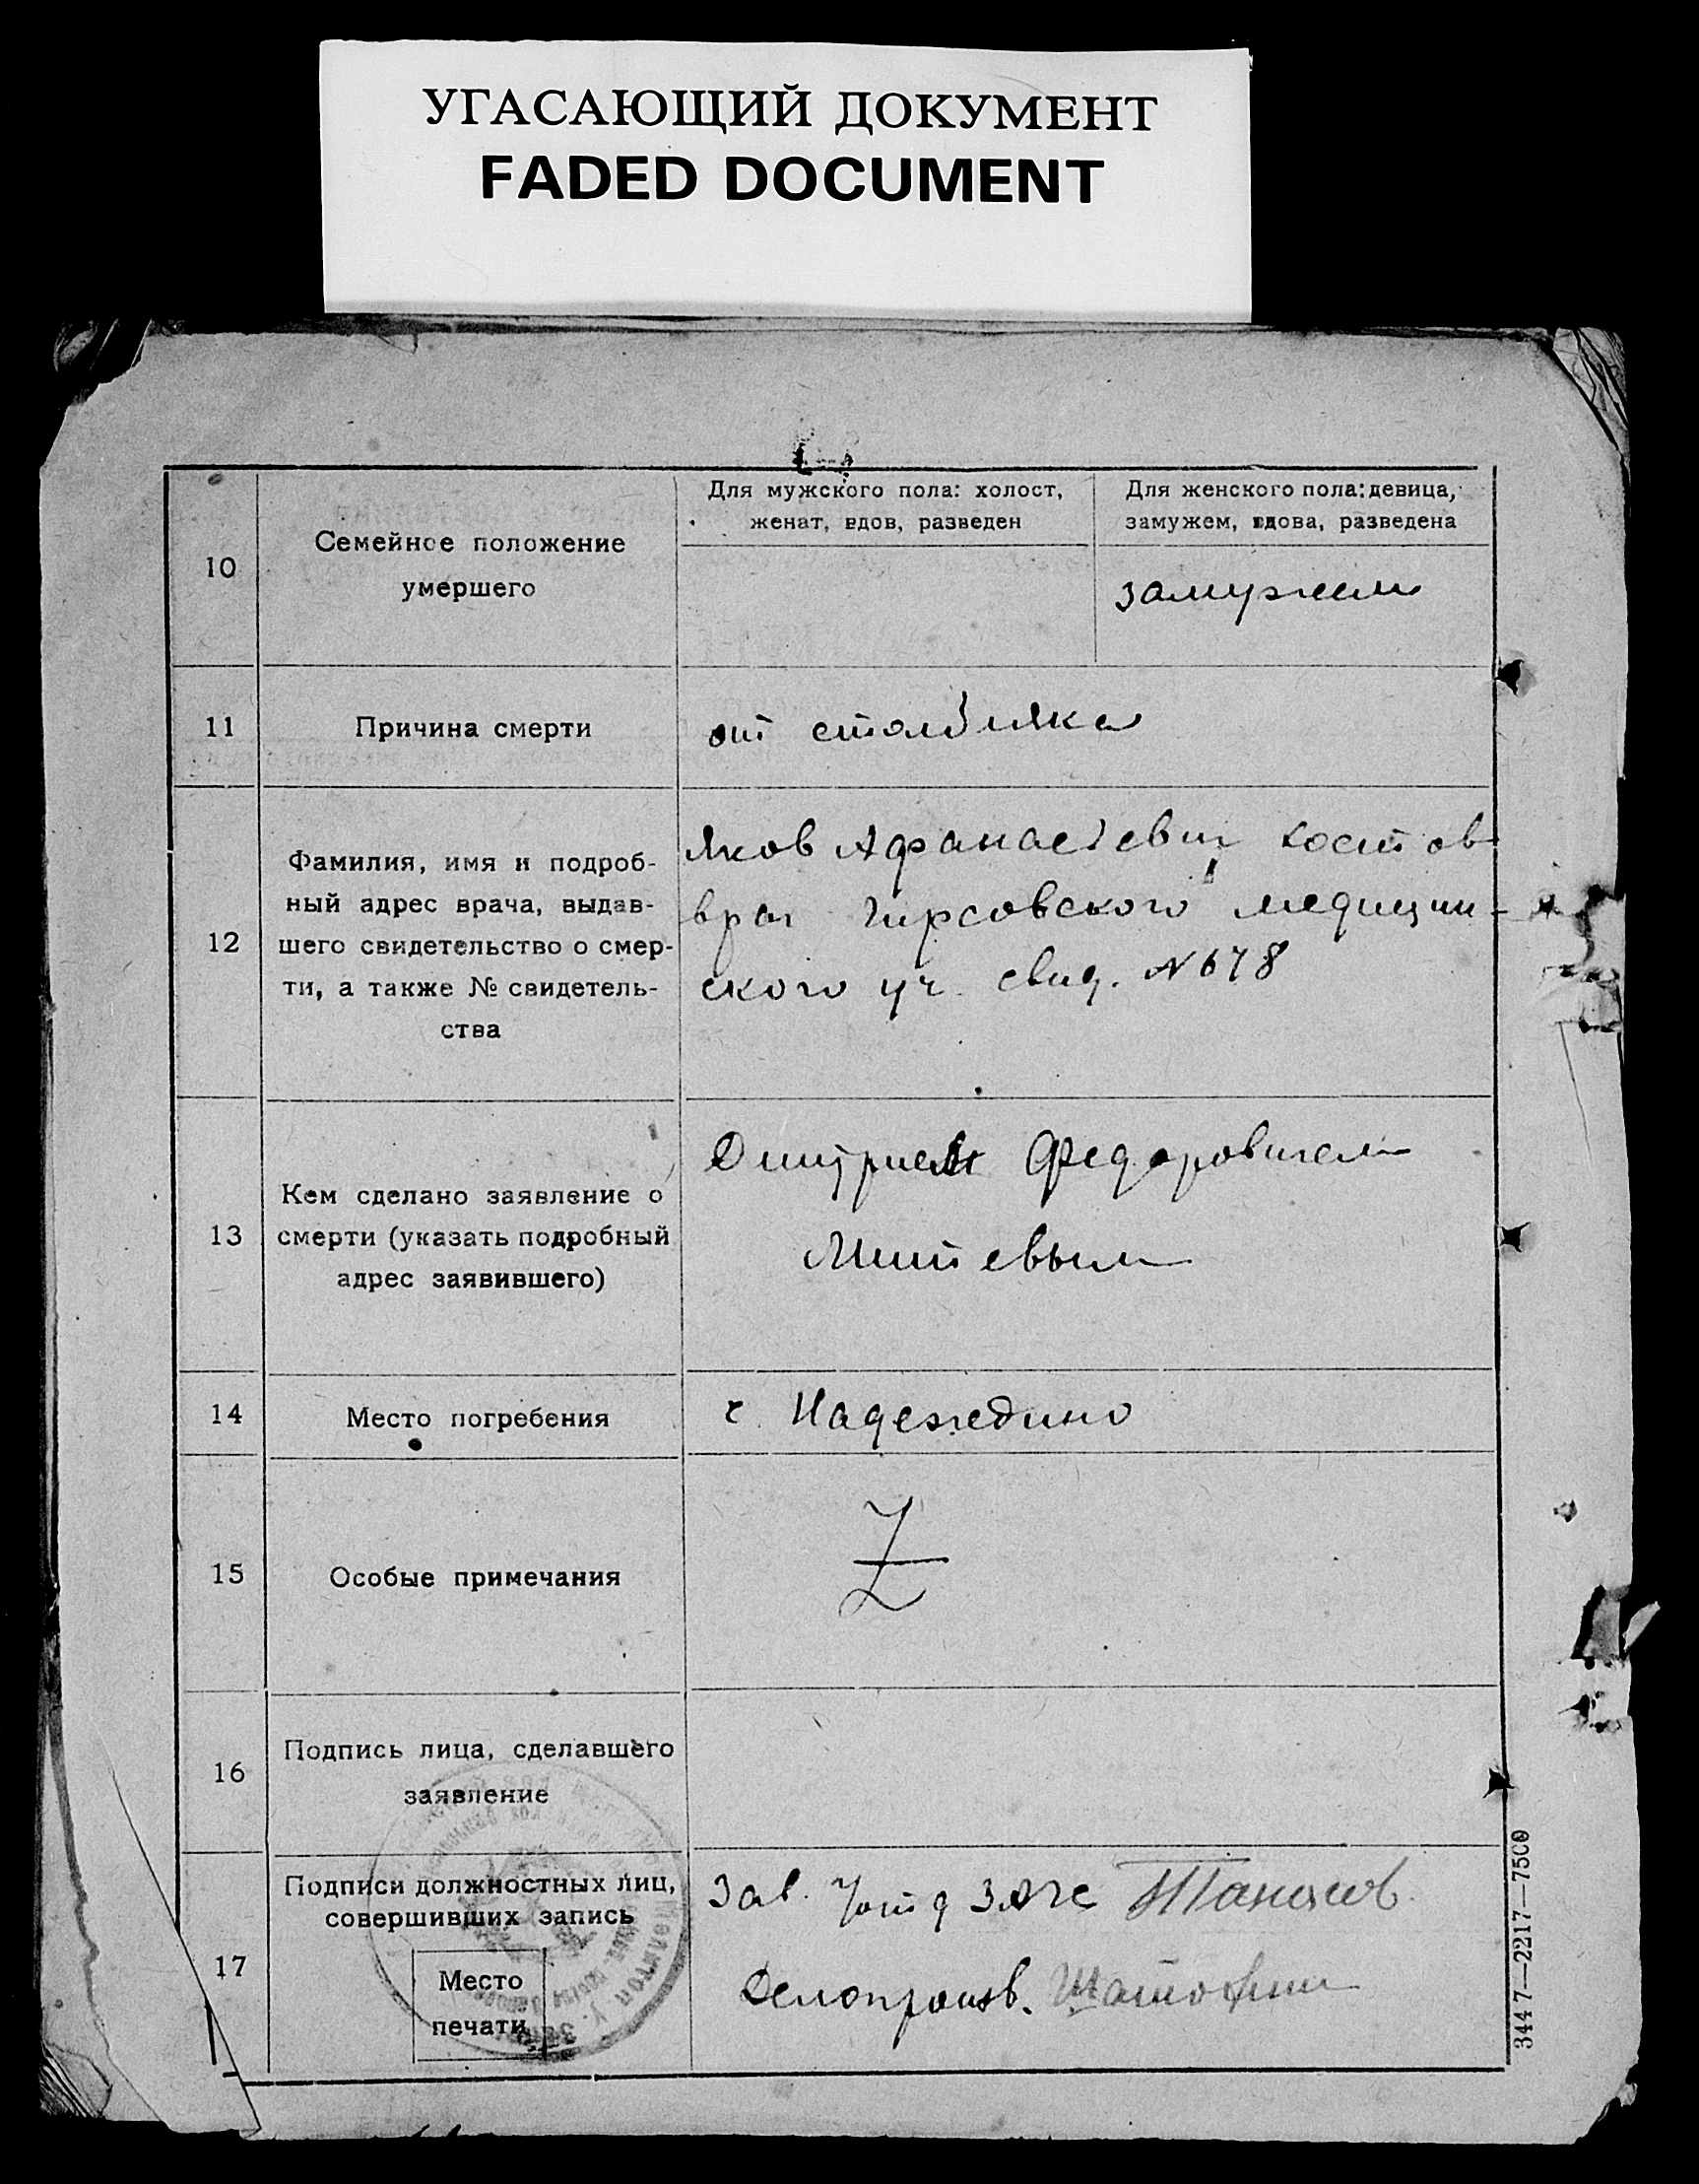 УГАСАЮЩИЙ ДОКУМЕНТ
FADED DOCUMENT
10
Семейное положение
умершего
Для мужского пола: холост,
женат, вдов, разведен
Для женского пола: девица,
замужем, вдова, разведена
замужем
11
Причина смерти
от столбняка
12
Фамилия, имя и подроб-
ный адрес врача, выдав-
шего свидетельство о смер-
ти, а также № свидетель-
ства
Яков Афанасевич Костов
врач Гирсовского медицин-
ского уч. свид. N 678
13
Кем сделано заявление о
смерти (указать подробный
адрес заявившего)
Дмитрием Федоровичем
Митевым
14
Место погребения
с. Надеждино
15
Особые примечания
Z
16
Подпись лица, сделавшего
заявление
17
Подписи должностных лиц,
совершивших запись
Место
печати
Зав.
Делопроизв.
3447—2217—7500